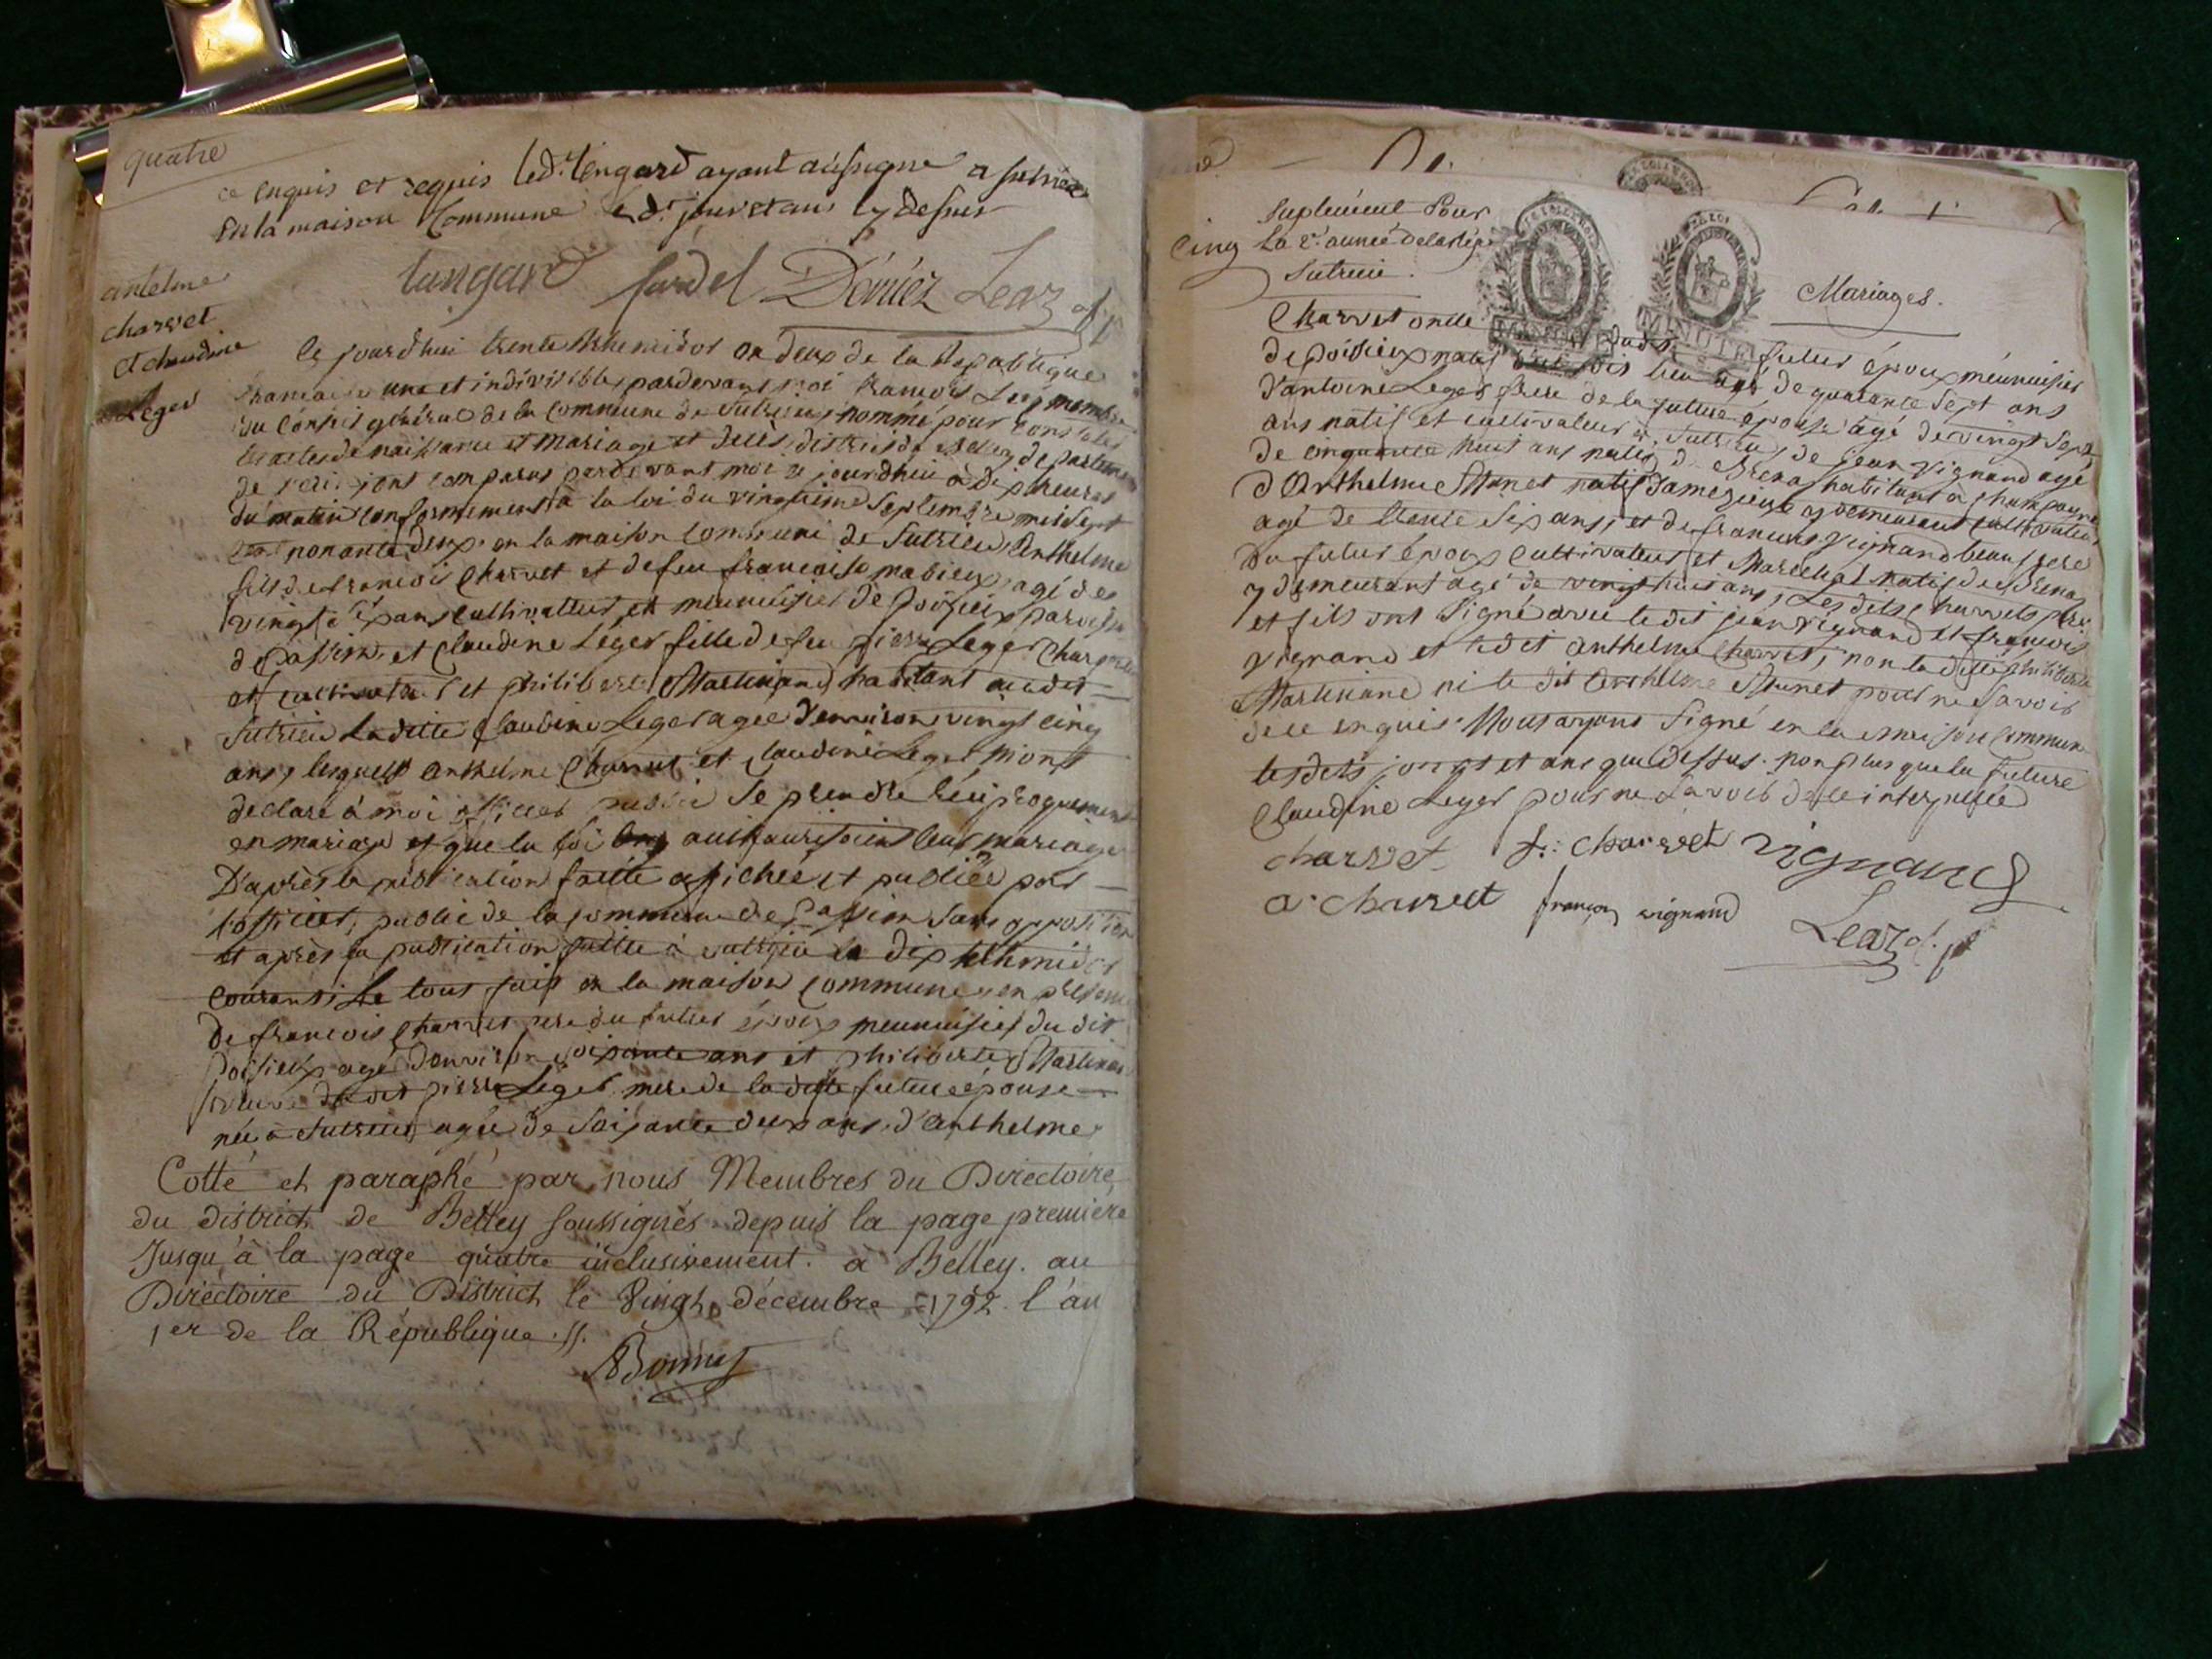 quatre
ce enquis et requis led. tengard ayant aussigne a sutrieu
En la maison Commune led. jour et an cy desus
tangard fardel Démiez Lear
antelme
charvet
et claudine
Leger
Ce jourdhui trente thermidor an deux de la Republique
francaise une et indivisible, pardevant moi francois membre
du Conseil général de la commune de Sutrieu, nommé pour Constater
les actes de naissance et mariage et decès, district de Belley departement
de l'ain sont comparus pardevant moi ce jourdhui à dix heures
du matin conformement à la loi du vingtieme Septembre mil Sept
Cent nonante deux en la maison commune de Sutrieu, Anthelme
fils de francois Charvet et defeu francoise mabieux, agé de
vingt ans cultivateur et meunuisier de poisieux paroisse
de passin, et Claudine Léger fille de feu pierre Leger
et cultivateur et philiberte Martinand habitant audit
Sutrieu laditte Claudine Leger agée d'environ vingt cinq
ans, lesquels Anthelme Charvet et Claudine Leger mont
declaré à moi officier public Se prendre réciproquement
en mariage et que la loi leur mariage
D'après la publication faitte affichée et publiée par
l'officier, public de la commune de passin Sans opposition
et après la publication faitte à Sutrieu le dix thermidor
courant; Le tout fait en la maison commune, en presence
De francois Charvet pere du futur époux meunuisier du dit
poisieux agé Denviron soixante ans et philiberte Martinand
veuve dudit pierre Leger mere de la ditte future épouse
née à Sutrieu agée de Soixante deux ans, d'Anthelme
Cotté et paraphé par nous Membres du Directoire
du district de Belley soussignés depuis la page première
Jusqu'à la page quatre inclusivement. à Belley. au
Directoire du District le Vingt décembre 1792. l'an
1er de la République.
Bonnet
Cinq
Suplement Pour
La 2e. année de la Rép
Sutrieu.
Mariages.
Charvet oncle futur époux meunuisier
de poisieux natif agé de quarante Sept ans
d'antoine Leger frere de la future épouse agé de vingt Sept
ans natif et cultivateur de Sutrieu, de jean vignand agé
de cinquante huit ans natif de Brenaz habitant à champagne
d'Anthelme Munet natif d'amezieux y demeurant cultivateur
agé de trente Six ans, et de francois vignand beaufrere
Du futur époux Cultivateur et Marechal natif de Brenaz
y demeurant agé de vingt huit ans, Les dits charvets pere
et fils ont Signé avec le dit jean vignand et francois
vignand et ledit anthelme Charvet, non la ditte philiberte
Martinand ni le dit Anthelme Munet pour ne Savoir
de ce enquis. Nous avons Signé en la maison Commune
lesdits jour et an que dessus. non plus que la future
Claudine Leger pour ne Savoir de ce interpellée
charvet f. charvet vignand
a. charvet françois vignand
Lear
MINUTE